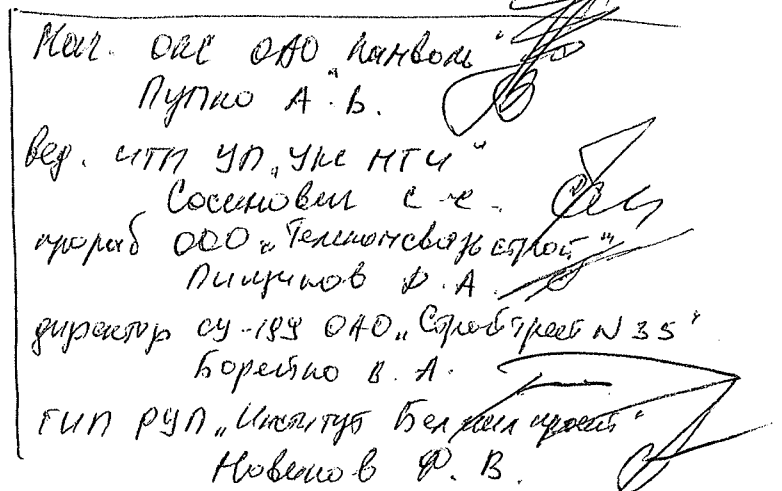 Нач. ОКС ОАО "Камволь"
Пупко А. В.
вед. ИТП УП "УКС НГИ"
Сосинович С. С.
прораб ООО "Телекомсвязьстрой"
Пищиков Ф. А.
директор СУ-199 ОАО "Стройтрест N 35"
Борейко В. А.
ГИП РУП "Институт Белжилпроект"
Новиков Ф. В.